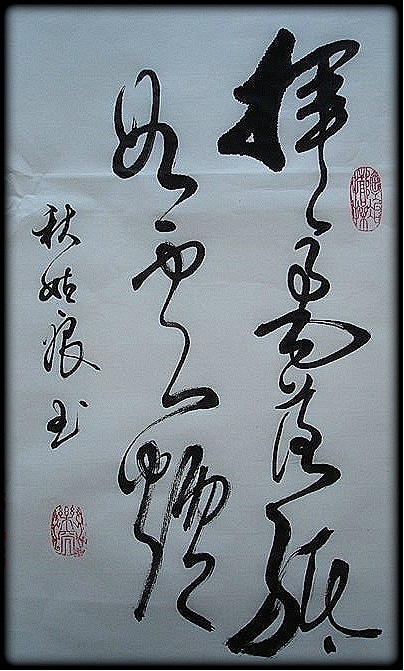 揮毫落紙
如雲煙
秋姑娘